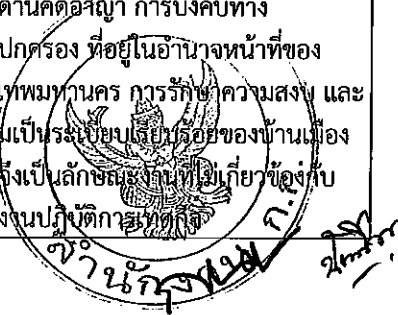 ด้านคดีอาญา การบังคับทาง
ปกครอง ที่อยู่ในอำนาจหน้าที่ของ
เทพมหานคร การรักษาความสงบ และ
มเป็นระเบียบเรียบร้อยของบ้านเมือง
จึงเป็นลักษณะงานที่ไม่เกี่ยวข้องกับ
งานปฏิบัติการเทศกิจ
สำนักงาน ก.ก.